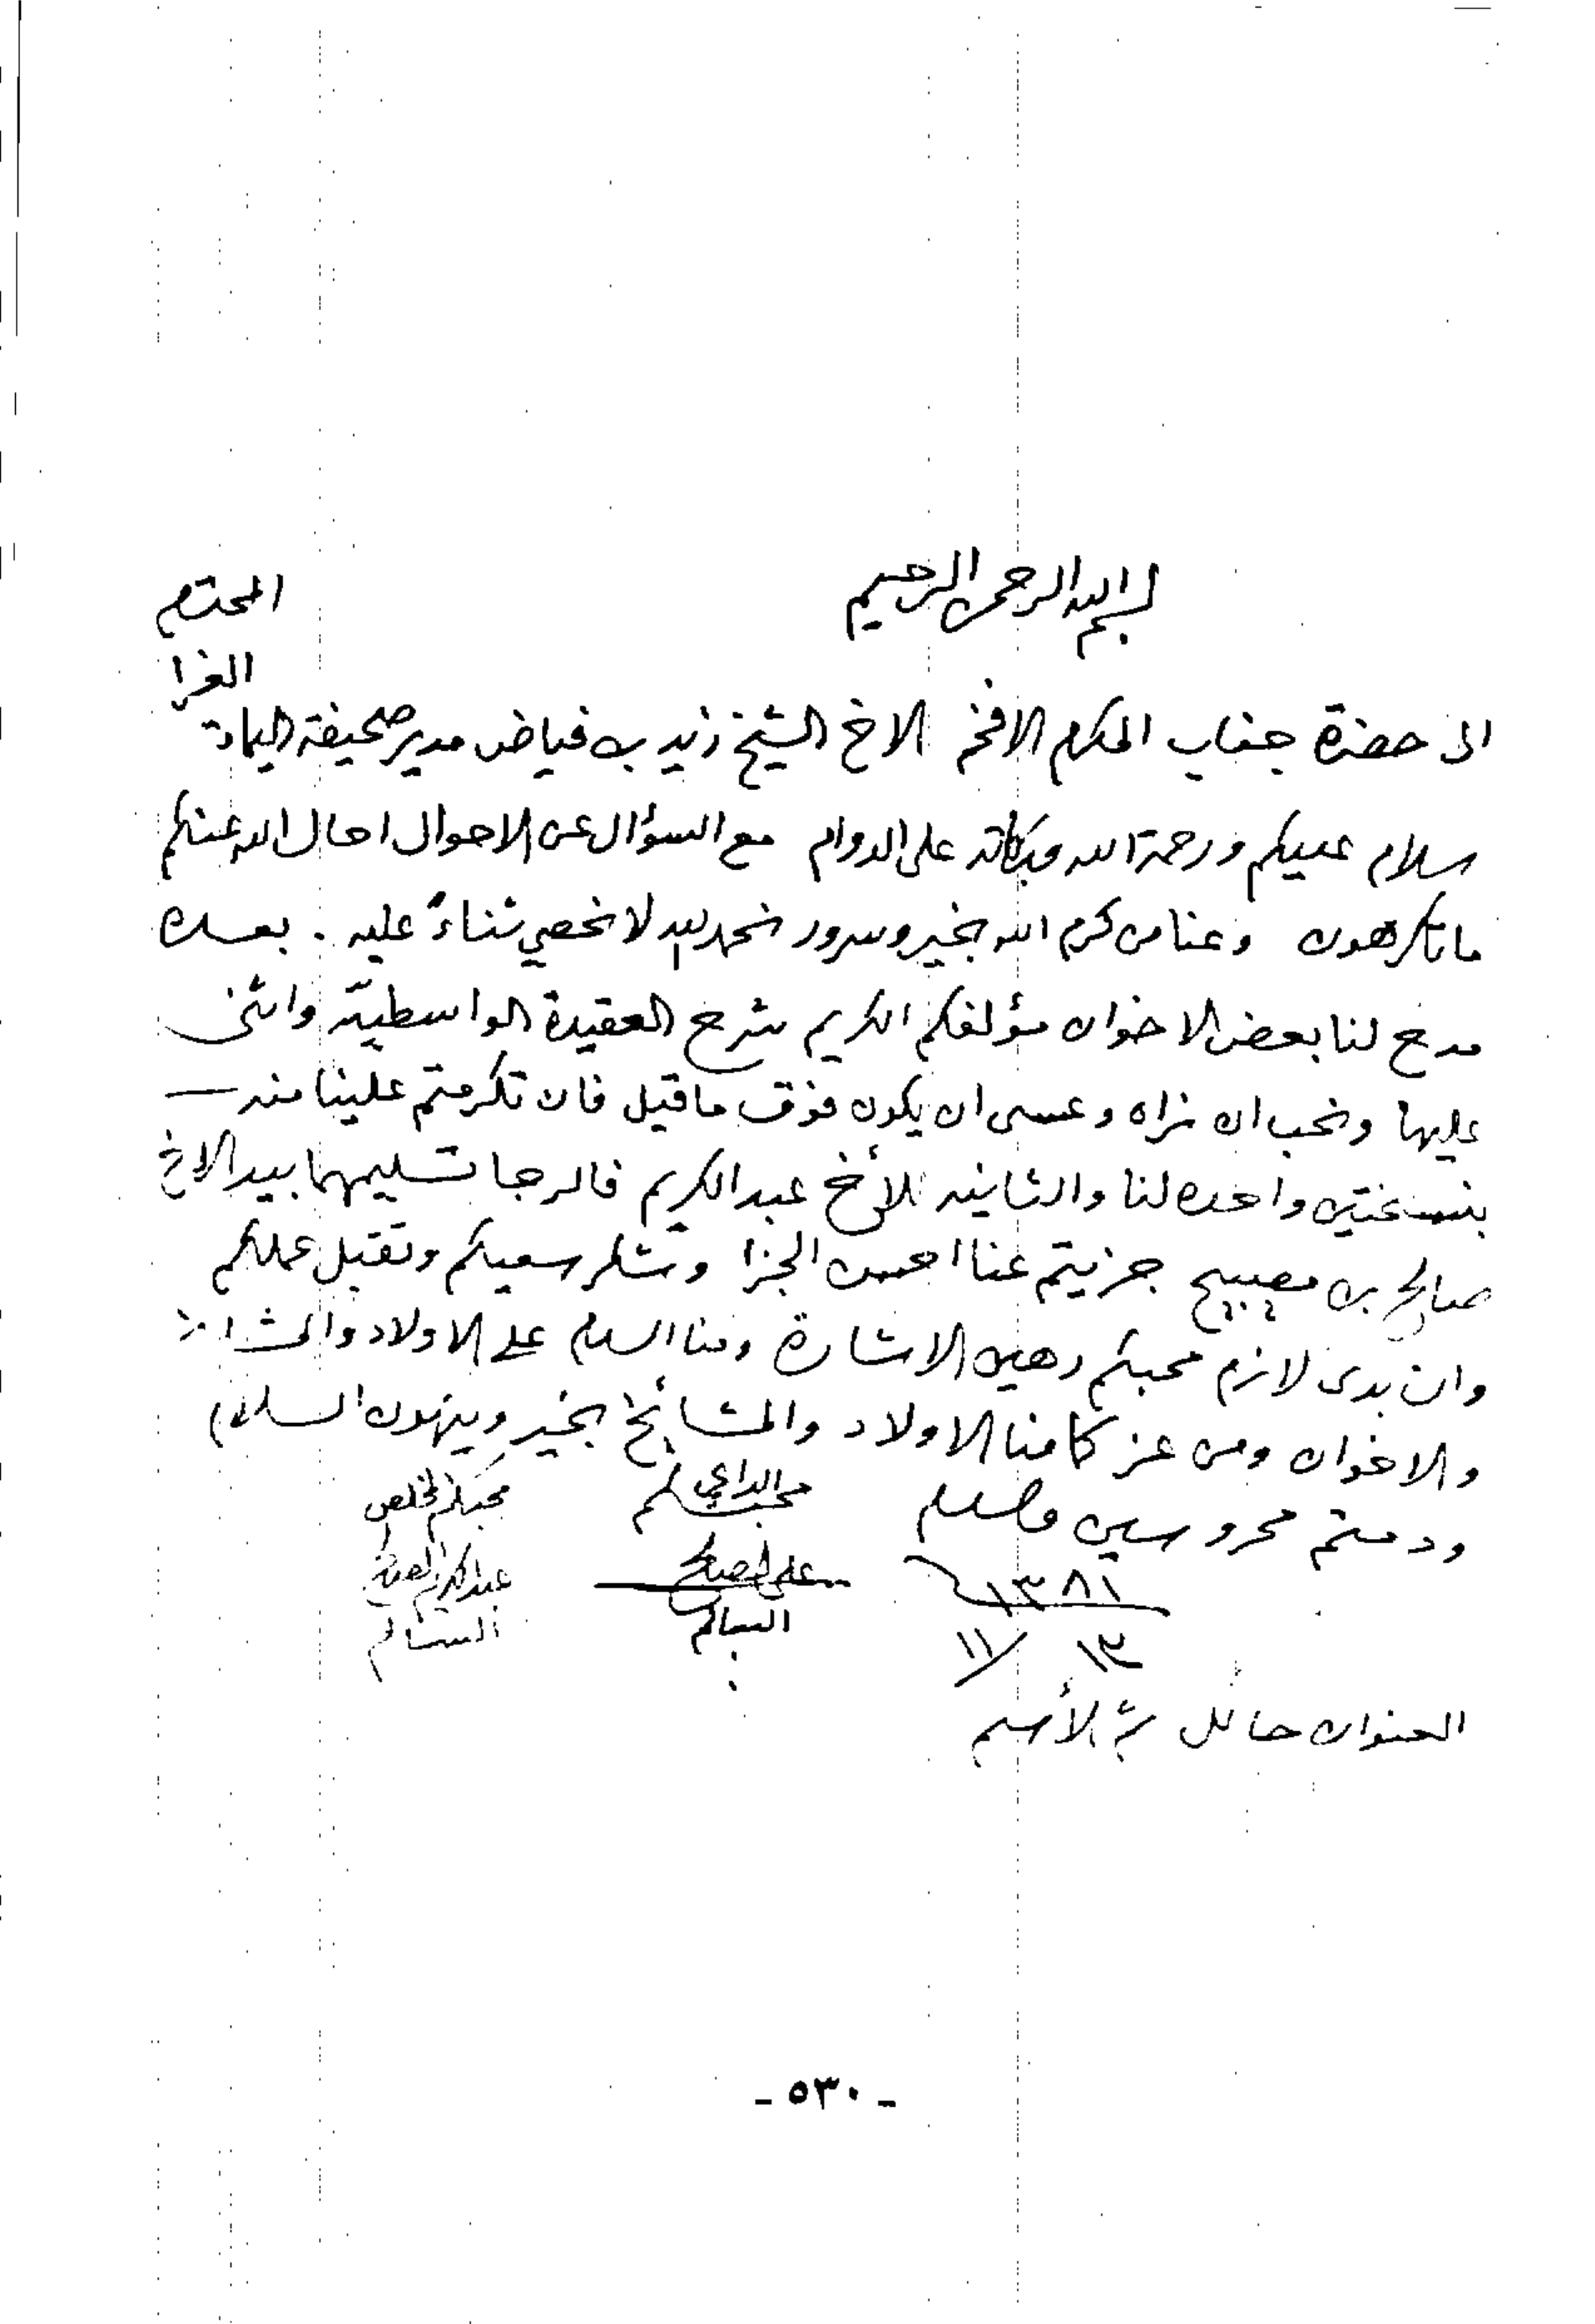 بسم الله الرحمن الرحيم
المحترم
الغرا
الى حضرة جناب المكرم الافخم الاخ الشيخ زيد بن فياض مدير صحيفة اليمامة
سلام عليكم ورحمة الله وبركاته على الدوام مع السؤال عن الاحوال احال الله عنكم
ما تكرهون وعنا من كرم الله بخير وسرور نحمد الله لا نحصي ثناءً عليه . بعده
مدح لنا بعض الاخوان مؤلفكم الكريم شرح العقيدة الواسطية واثنى
عليها ونحب ان نراه وعسى ان يكون فوق ما قيل فان تكرمتم علينا منه
بنسختين واحده لنا والثانيه للأخ عبد الكريم فالرجا تسليمهما بيد الاخ
صالح بن مصيبيح جزيتم عنا احسن الجزا وشكر سعيكم وتقبل عملكم
وان بدى لازم محبكم رهين الاشارة ومنا السلام على الاولاد والمشائخ
والاخوان ومن عز كامنا الاولاد والمشائخ بخير وينهون السلام
ودمتم محروسين والسلام
١٣٨١
١٣ / ١١
محبكم الداعي لكم
علي الصالح
السالم
محبكم المخلص
عبدالكريم الصالح
السالم
العنوان حائل الأسم
- ٥٣٠ -